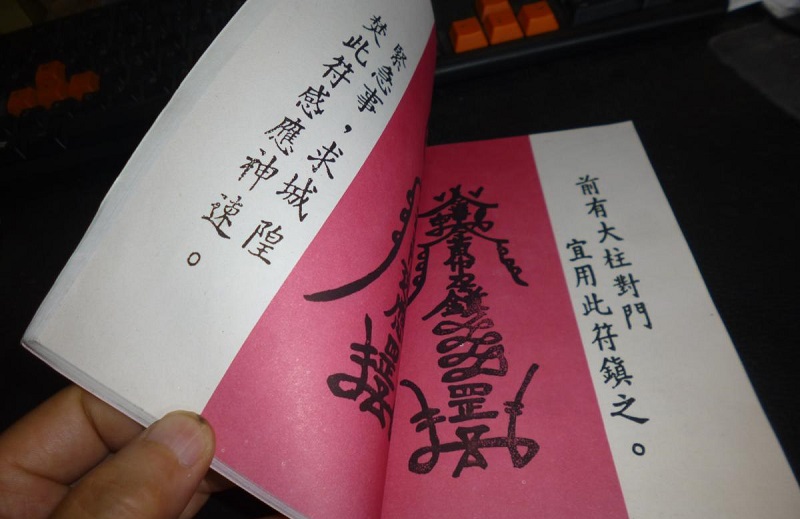 緊急事，求城隍
焚此符感應神速。
前有大柱對門
宜用此符鎮之。